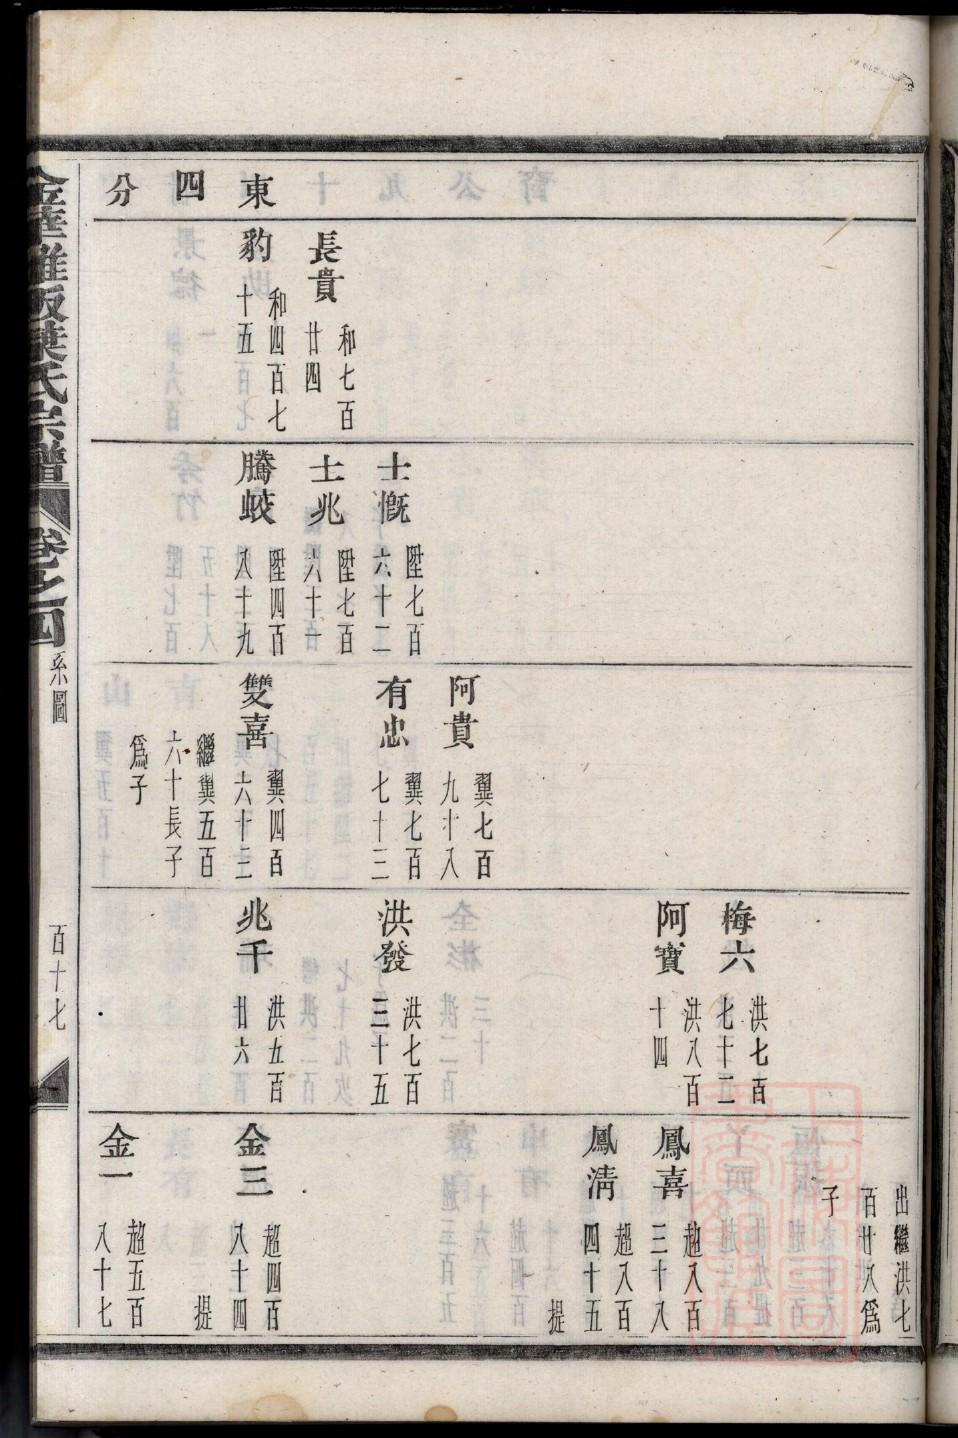 東
四
分
長貴
和七百
廿四
豹
和四百七
十五
士慨
陞七百
六十二
士兆
陞七百
六十一
騰蛟
陞四百
八十九
阿貴
翼七百
九十八
有忠
翼七百
七十三
雙喜
翼四百
六十三
繼翼五百
六十長子
爲子
梅六
洪七百
七十二
阿寶
洪八百
十四
洪發
洪七百
三十五
兆千
洪五百
廿六
出繼洪七
百廿八爲
子
鳳喜
趙八百
三十八
鳳清
趙八百
四十五
提
金三
趙四百
八十四
提
金一
趙五百
八十七
葉氏宗譜
卷之四
系圖
百十七